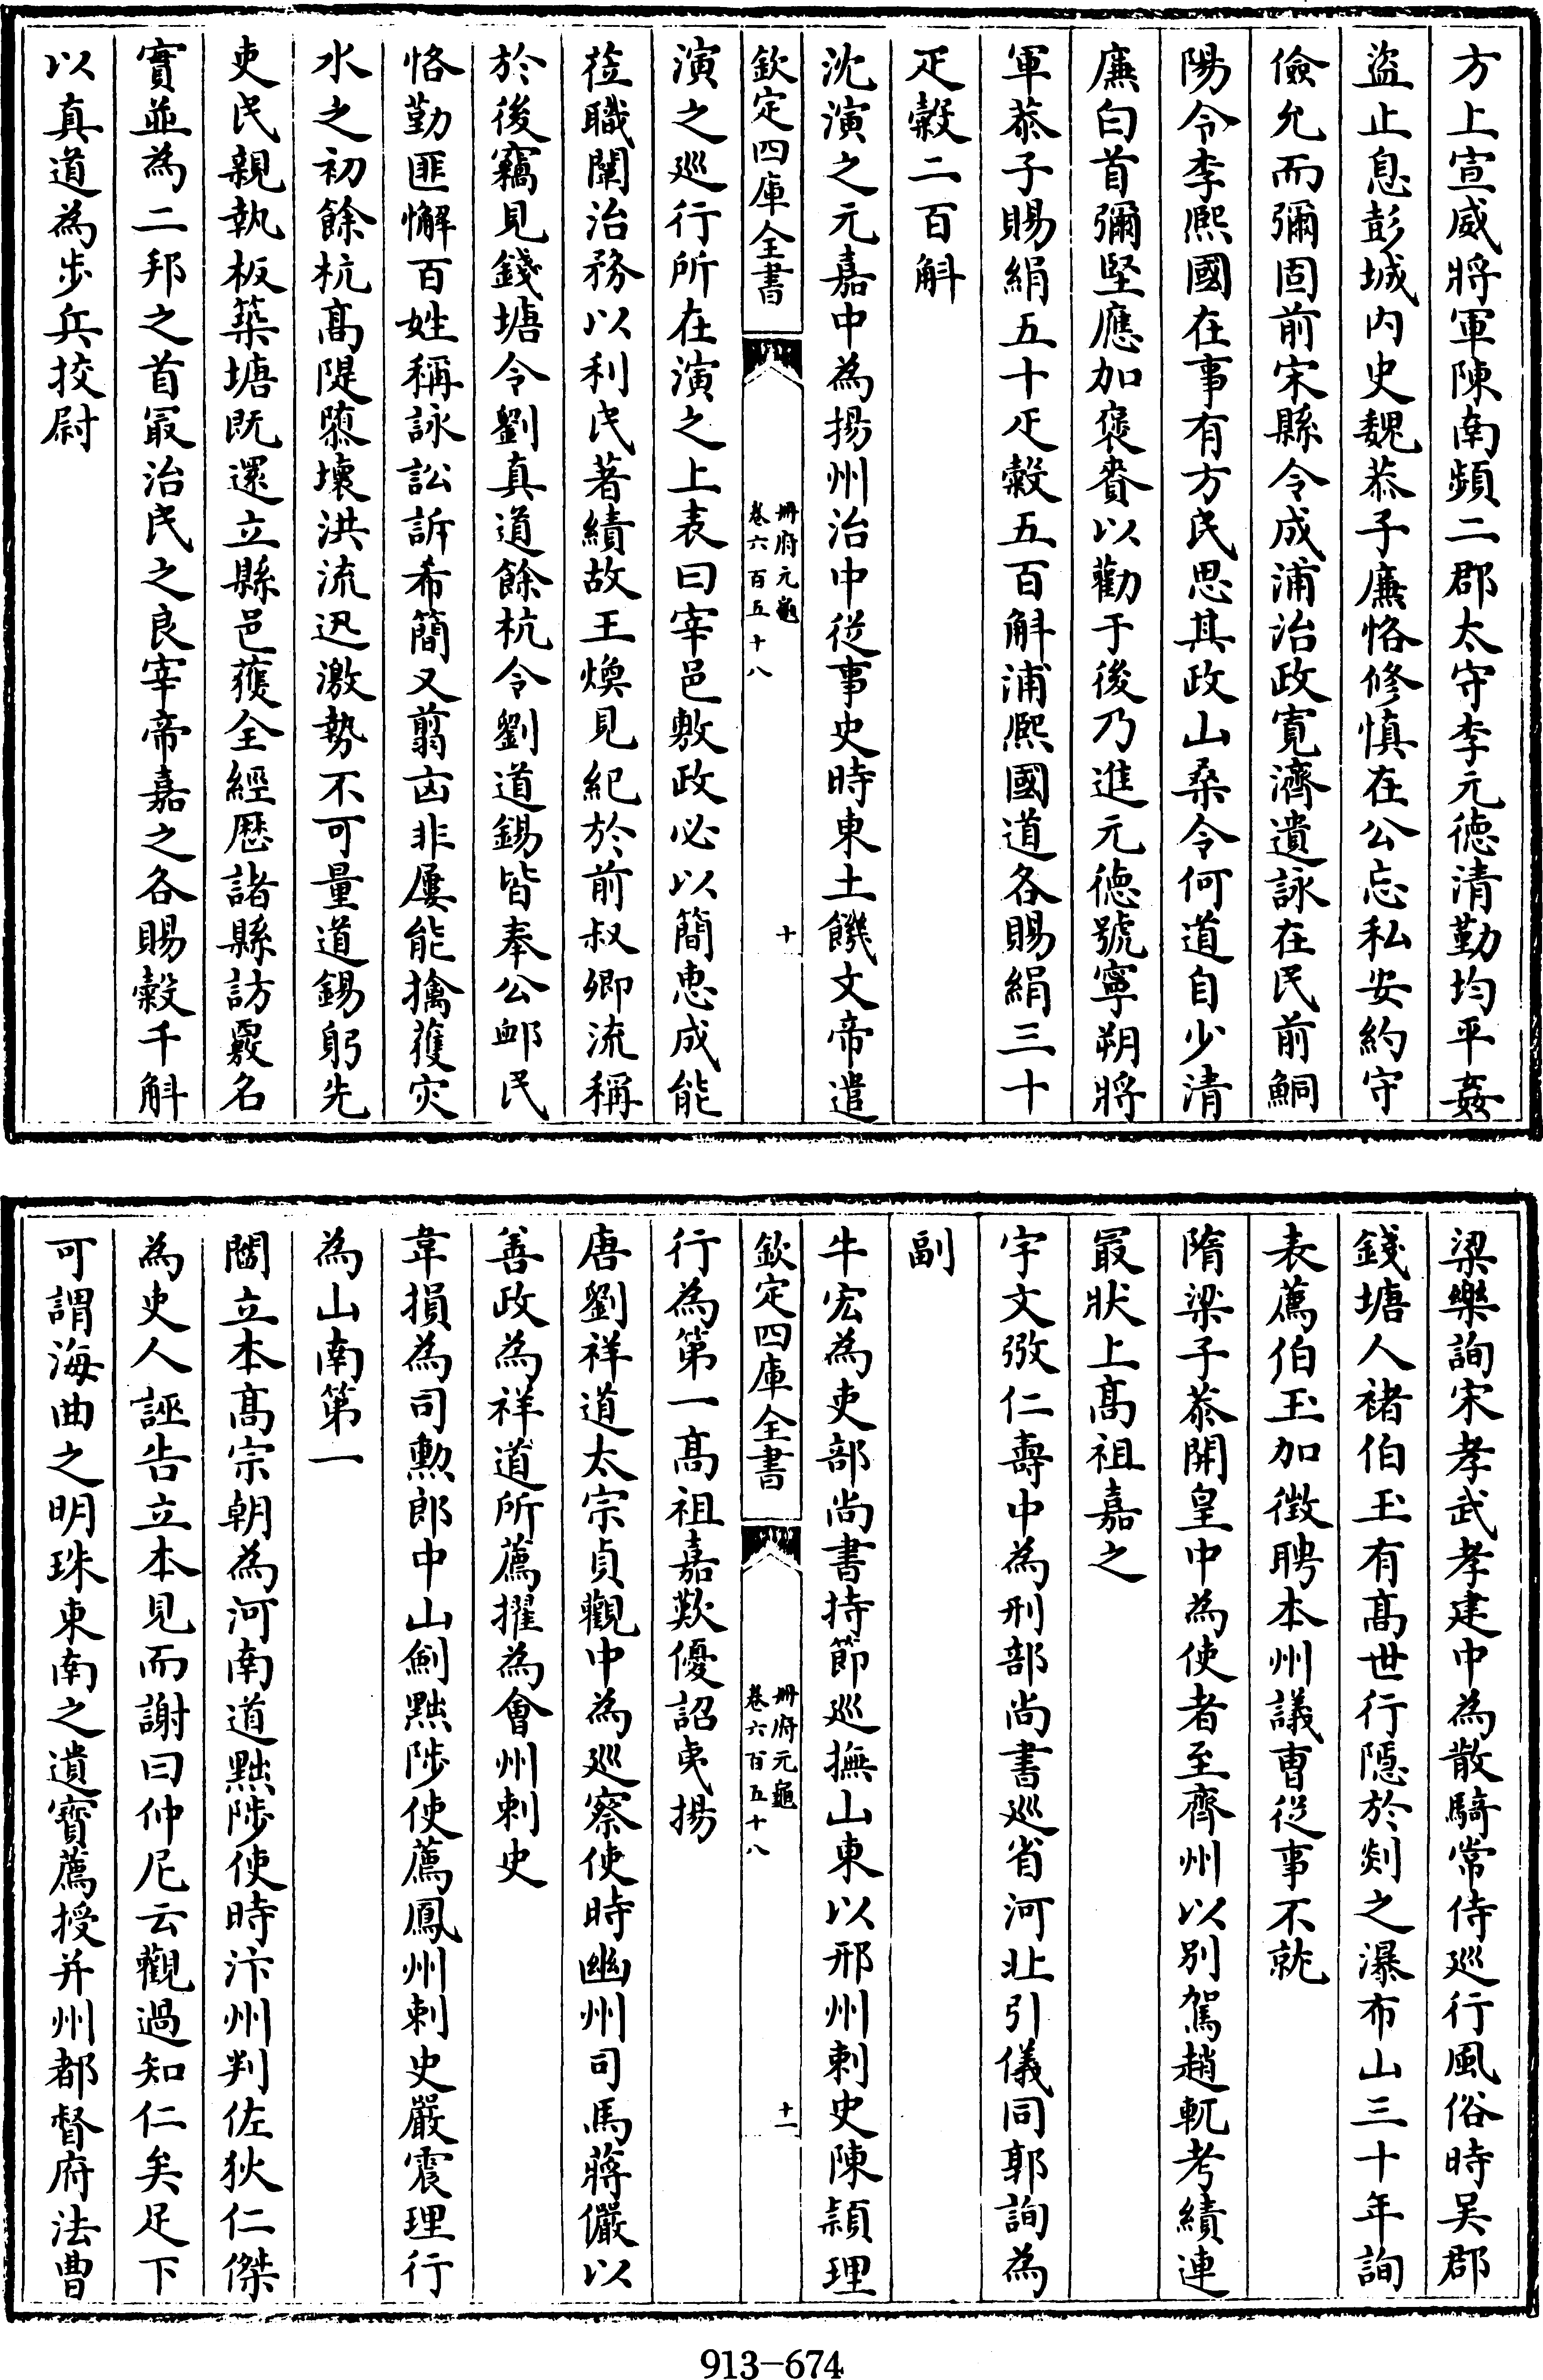 方上宣威將軍陳南頻二郡太守李元德清勤均平姦
盜止息彭城内史魏恭子廉恪修慎在公忘私安約守
儉允而彌固前宋縣令成浦治政寛濟遺詠在民前鮦
陽令李熙國在事有方民思其政山桑令何道自少清
廉白首彌堅應加褒賚以勸于後乃進元德號寧朔將
軍恭子賜絹五十疋穀五百斛浦熙國道各賜絹三十
疋穀二百斛
沈演之元嘉中為揚州治中從事史時東土饑文帝遣
欽定四庫全書
冊府元龜
卷六百五十八
十
演之巡行所在演之上表曰宰邑敷政必以簡惠成能
莅職闡治務以利民著績故王煥見紀於前叔卿流稱
於後竊見錢塘令劉真道餘杭令劉道錫皆奉公䘏民
恪勤匪懈百姓稱詠訟訴希簡又翦凶非屢能擒獲灾
水之初餘杭髙隄隳壞洪流迅激勢不可量道錫躬先
吏民親執板築塘既還立縣邑獲全經歴諸縣訪覈名
實並為二邦之首最治民之良宰帝嘉之各賜穀千斛
以真道為步兵挍尉
梁樂詢宋孝武孝建中為散騎常侍巡行風俗時吴郡
錢塘人褚伯玉有髙世行隠於剡之瀑布山三十年詢
表薦伯玉加徴聘本州議曹從事不就
隋梁子恭開皇中為使者至齊州以别駕趙軏考績連
最狀上髙祖嘉之
宇文㢸仁壽中為刑部尚書巡省河北引儀同郭詢為
副
牛宏為吏部尚書持節巡撫山東以邢州刺史陳頴理
欽定四庫全書
冊府元龜
卷六百五十八
十一
行為第一髙祖嘉歎優詔襃揚
唐劉祥道太宗貞觀中為巡察使時幽州司馬蔣儼以
善政為祥道所薦擢為會州刺史
韋損為司勲郎中山劍黜陟使薦鳳州刺史嚴震理行
為山南第一
閻立本髙宗朝為河南道黜陟使時汴州判佐狄仁傑
為吏人誣告立本見而謝曰仲尼云觀過知仁矣足下
可謂海曲之明珠東南之遺寳薦授并州都督府法曹
913-674